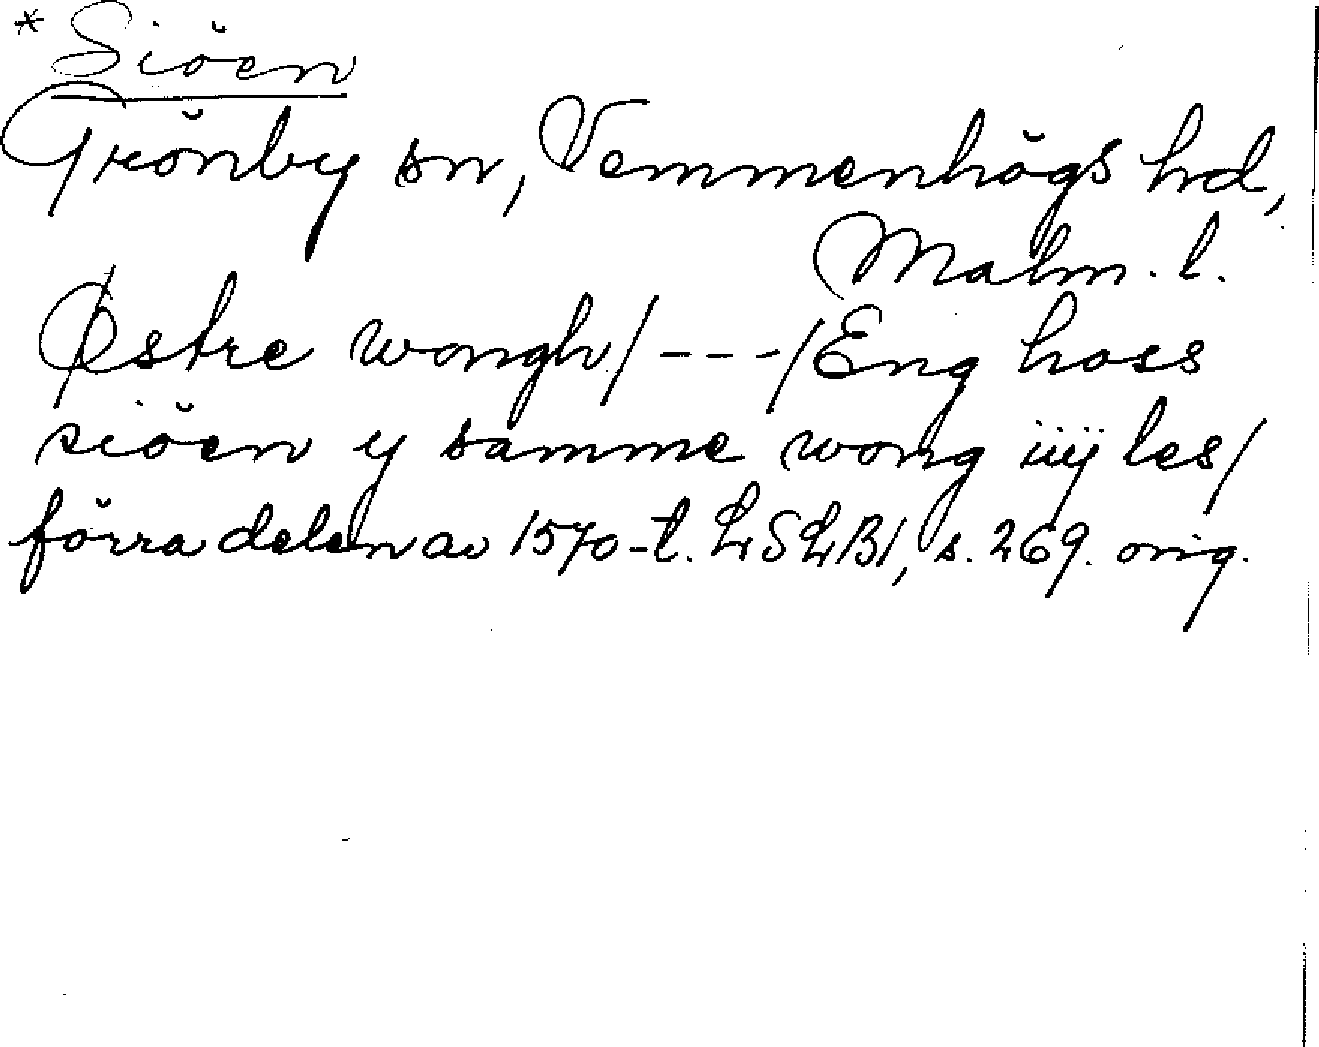 * Siöen
Grönby sn, Vemmenhögs hd,
Malm. l.
Østre wongh/---/Eng hoss
siöen y samme wong iiij les/
förra delen av 1570-t. LSLB1, s. 269. orig.